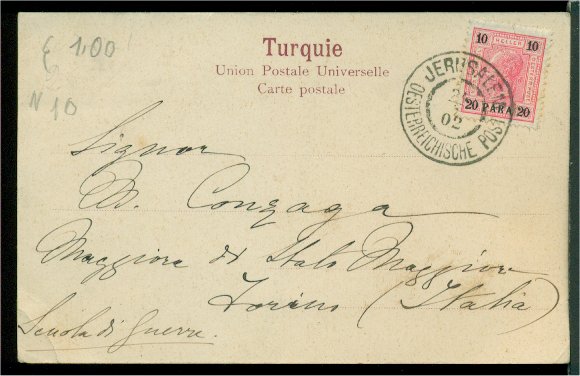 £ 1.00
N 10
Turquie
Union Postale Universelle
Carte postale
10 HELLER 10
20 PARA 20
JERUSALEM
02
OESTERREICHISCHE POST
Signor
Gonzaga
Maggiore di Stato Maggiore
Torino (Italia)
Scuola di Guerra.